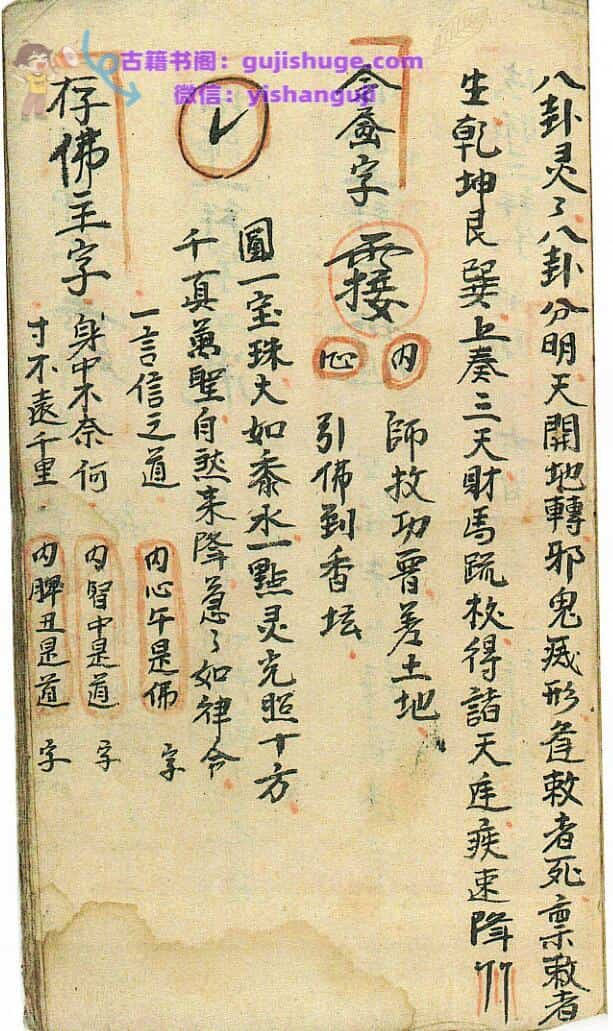 古籍书阁：gujishuge.com
微信：yishanguji
八卦灵〻八卦分明天開地轉邪鬼㓕形逢敕者死禀敕者
生乾坤艮巽上奏三天財馬疏枚得諸天疾速降
字
内
心
師教功曹差土地
引佛到香坛
圓一宝珠大如黍水一點灵光照十方
千真萬聖自然来降急〻如律令
一言信之道 内心午是佛 字
存佛主字
身中不奈何 内腎中是道 字
寸不遠千里 内脾丑是道 字